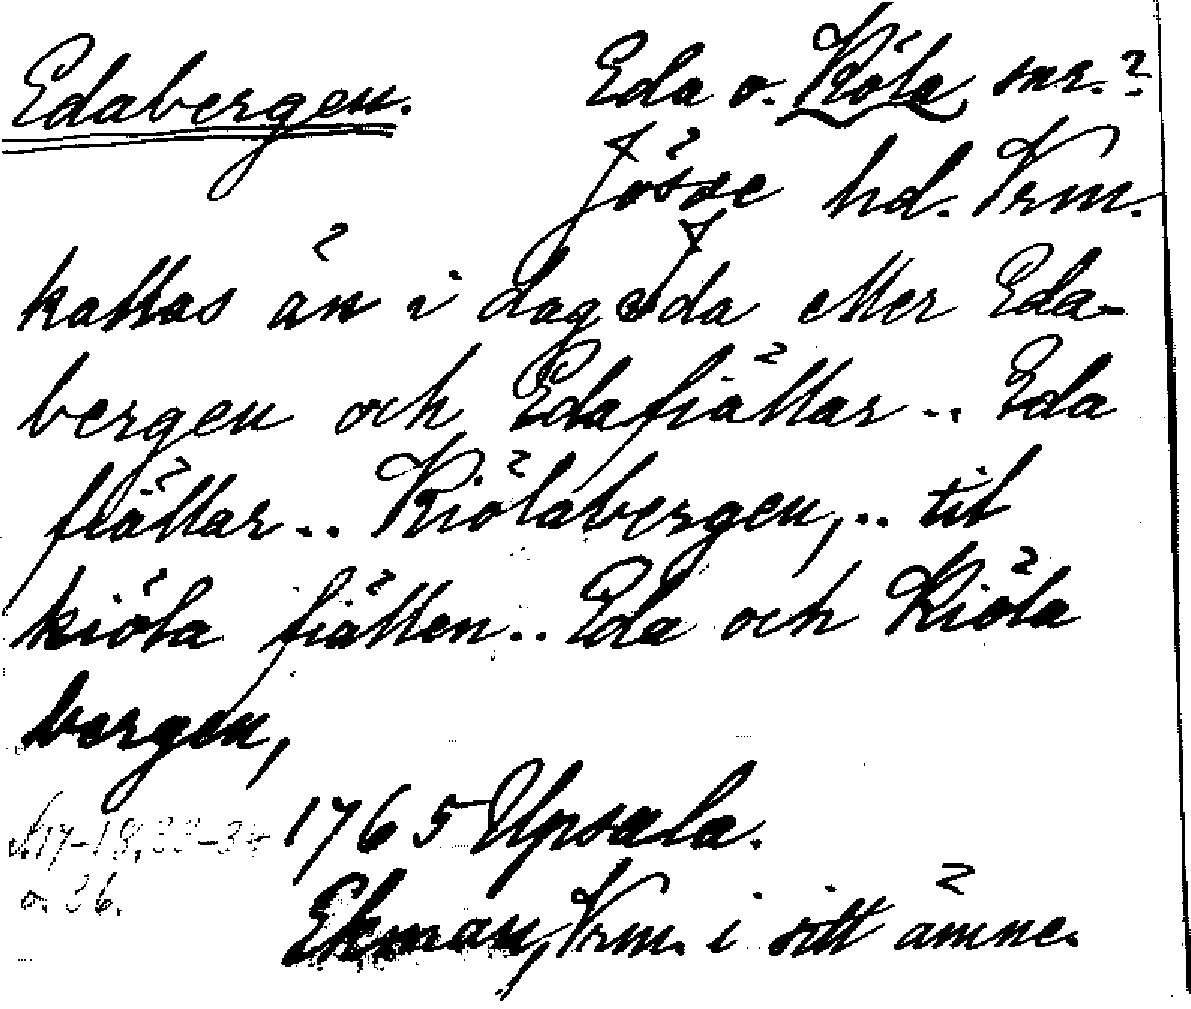 Edabergen. Eda o. Köla snr.?
Jösse hd. Vrm.
kallas än i dag Eda eller Eda-
bergen och Edafjällar .. Eda
fiällar .. Kiölabergen, .. til
kiöla fiällen .. Eda och Kiöla
bergen,
1765 Upsala.
s. 17-18, 33-34
o. 36.
Ekman, Vrm. i sitt ämne.